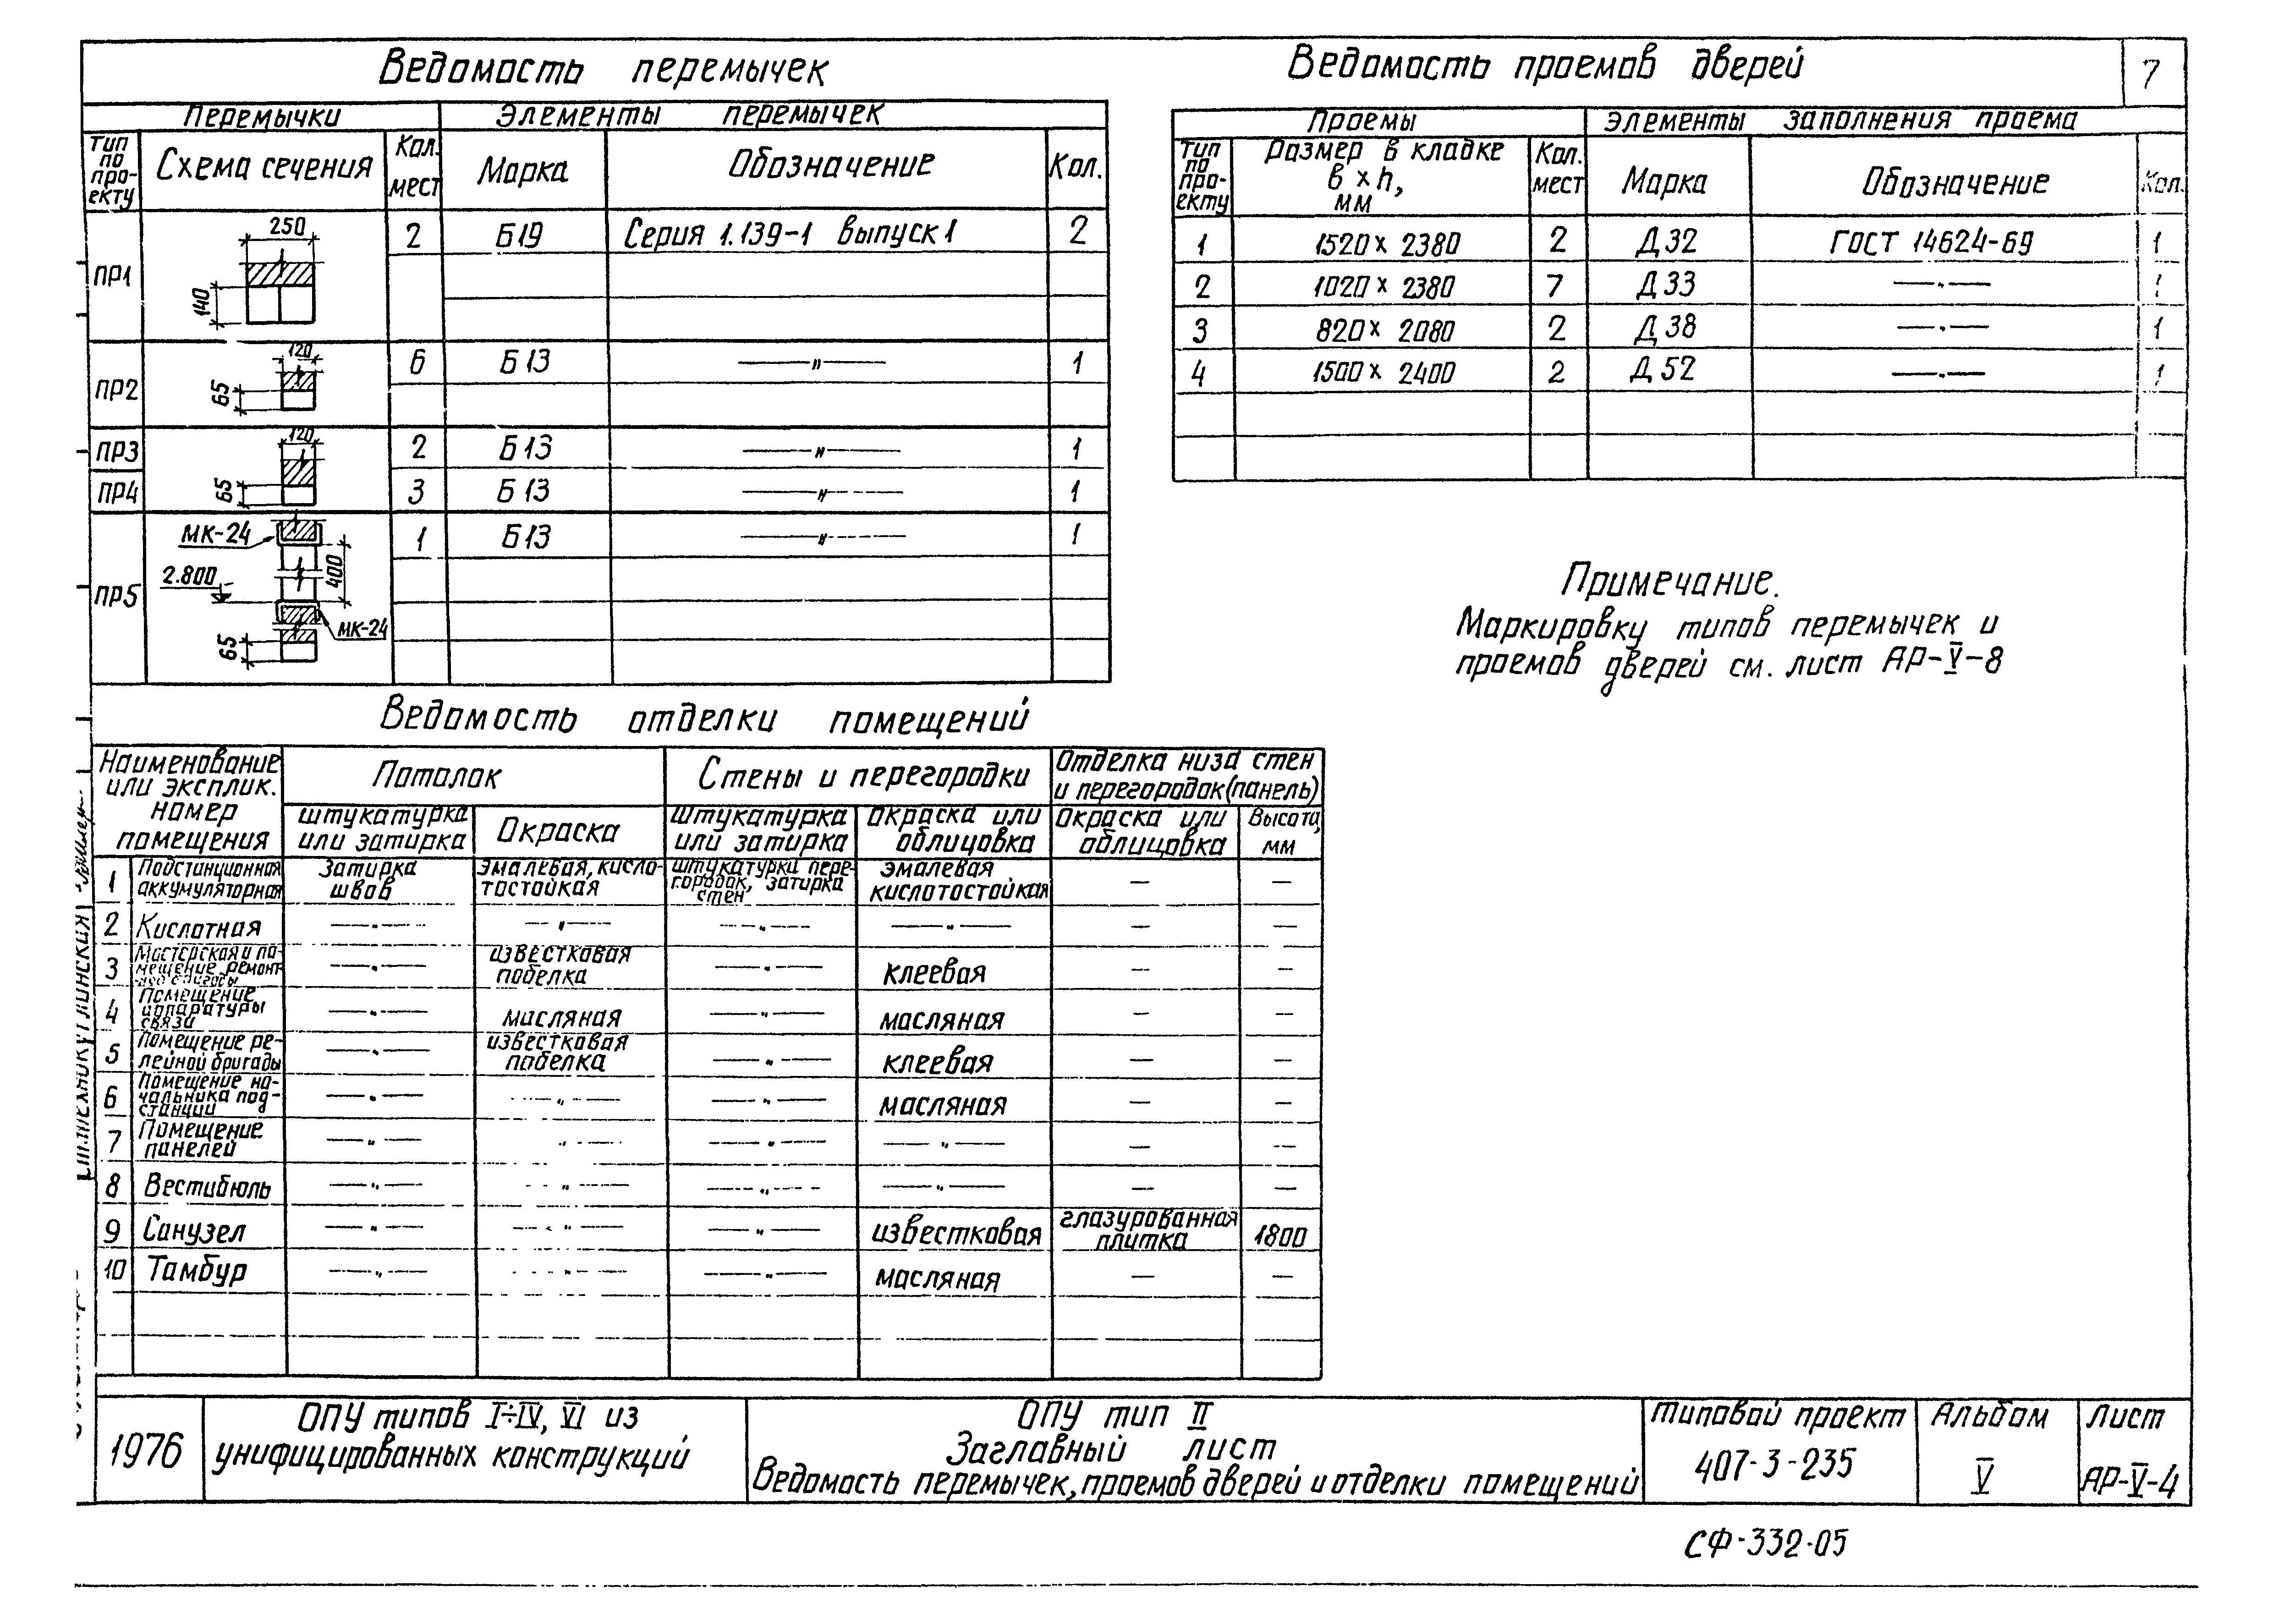 Ведомость перемычек
Перемычки
Элементы перемычек
Тип по про-екту
Схема сечения
Кол. мест
Марка
Обозначение
Кол.
ПР1
250
140
2 Б19 Серия 1.139-1 выпуск 1 2
ПР2
120
65
6 Б13 —"— 1
ПР3
120
2 Б13 —"— 1
ПР4
65
3 Б13 —"— 1
ПР5
МК-24
2.800
400
МК-24
65
1 Б13 —"— 1
Ведомость проемов дверей
7
Проемы
Элементы заполнения проема
Тип по про-екту
Размер в кладке
в х h,
мм
Кол. мест
Марка
Обозначение
Кол.
1 1520 х 2380 2 Д32 ГОСТ 14624-69 1
2 1020 х 2380 7 Д33 —"— 1
3 820 х 2080 2 Д38 —"— 1
4 1500 х 2400 2 Д52 —"— 1
Примечание.
Маркировку типов перемычек и
проемов дверей см. лист АР-V-8
Ведомость отделки помещений
Наименование
или эксплик.
номер
помещения
Потолок
Стены и перегородки
Отделка низа стен
и перегородок (панель)
штукатурка
или затирка
Окраска
Штукатурка
или затирка
Окраска или
облицовка
Окраска или
облицовка
Высота,
мм
1 Подстанционная аккумуляторная
Затирка швов
эмалевая, кисло-тостойкая
штукатурка пере-городок, затирка стен
эмалевая кислотостойкая
— —
2 Кислотная —"— —"— —"— —"— — —
3 Мастерская и по-мещение ремонт-ной бригады —"— известковая побелка —"— клеевая — —
4 Помещение аппаратуры связи —"— масляная —"— масляная — —
5 Помещение ре-лейной бригады —"— известковая побелка —"— клеевая — —
6 Помещение на-чальника под-станции —"— —"— —"— масляная — —
7 Помещение панелей —"— —"— —"— —"— — —
8 Вестибюль —"— —"— —"— —"— — —
9 Санузел —"— —"— —"— известковая глазурованная плитка 1800
10 Тамбур —"— —"— —"— масляная — —
1976
ОПУ типов I÷IV, VI из
унифицированных конструкций
ОПУ тип II
Заглавный лист
Ведомость перемычек, проемов дверей и отделки помещений
типовой проект
407-3-235
Альбом
V
Лист
АР-V-4
СФ-332-05